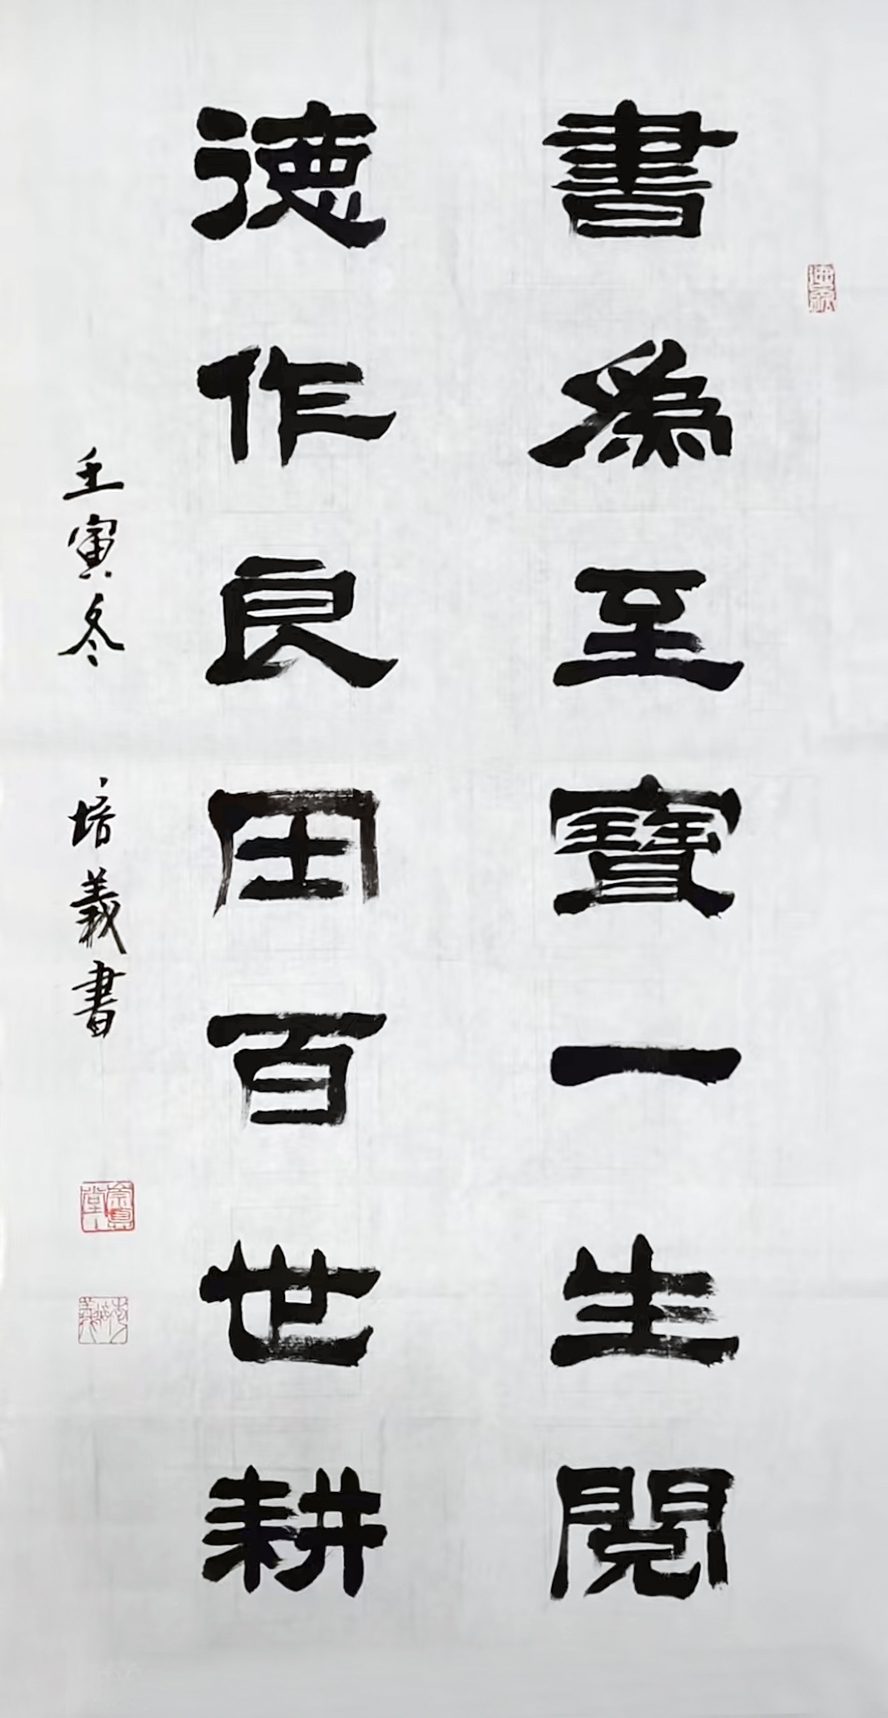 書為至寶一生閱
德作良田百世耕
壬寅冬 培義書